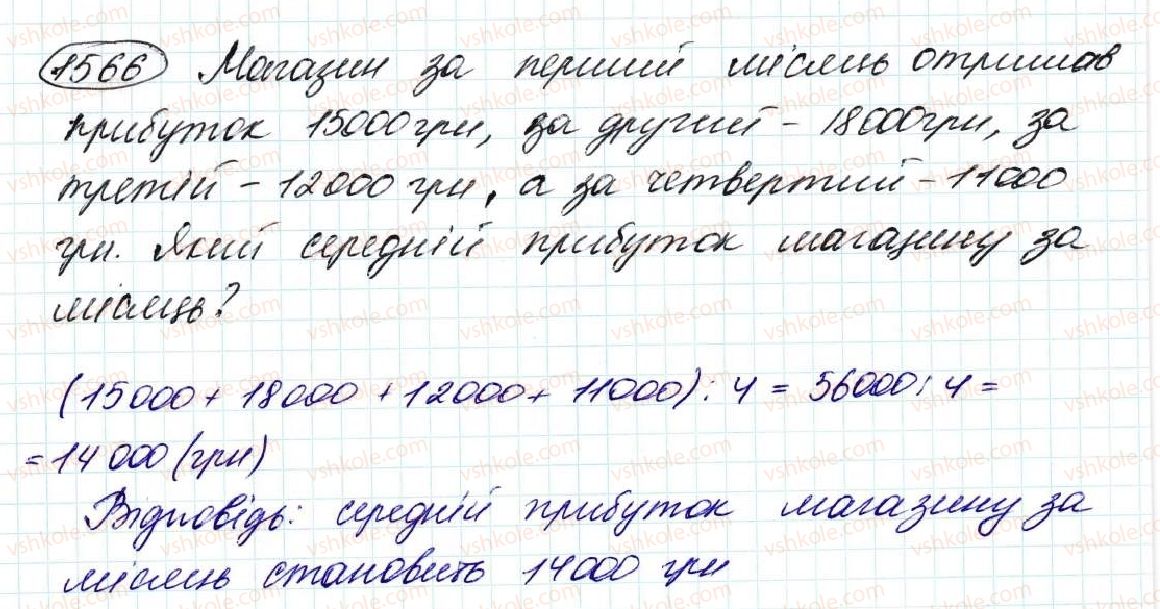 1566 Магазин за перший місяць отримав
прибуток 15000грн, за другий - 18000грн, за
третій - 12000 грн, а за четвертий - 11000
грн. Який середній прибуток магазину за
місяць?
(15000 + 18000 + 12000 + 11000) : 4 = 56000 : 4 =
= 14 000 (грн)
Відповідь: середній прибуток магазину за
місяць становить 14000 грн